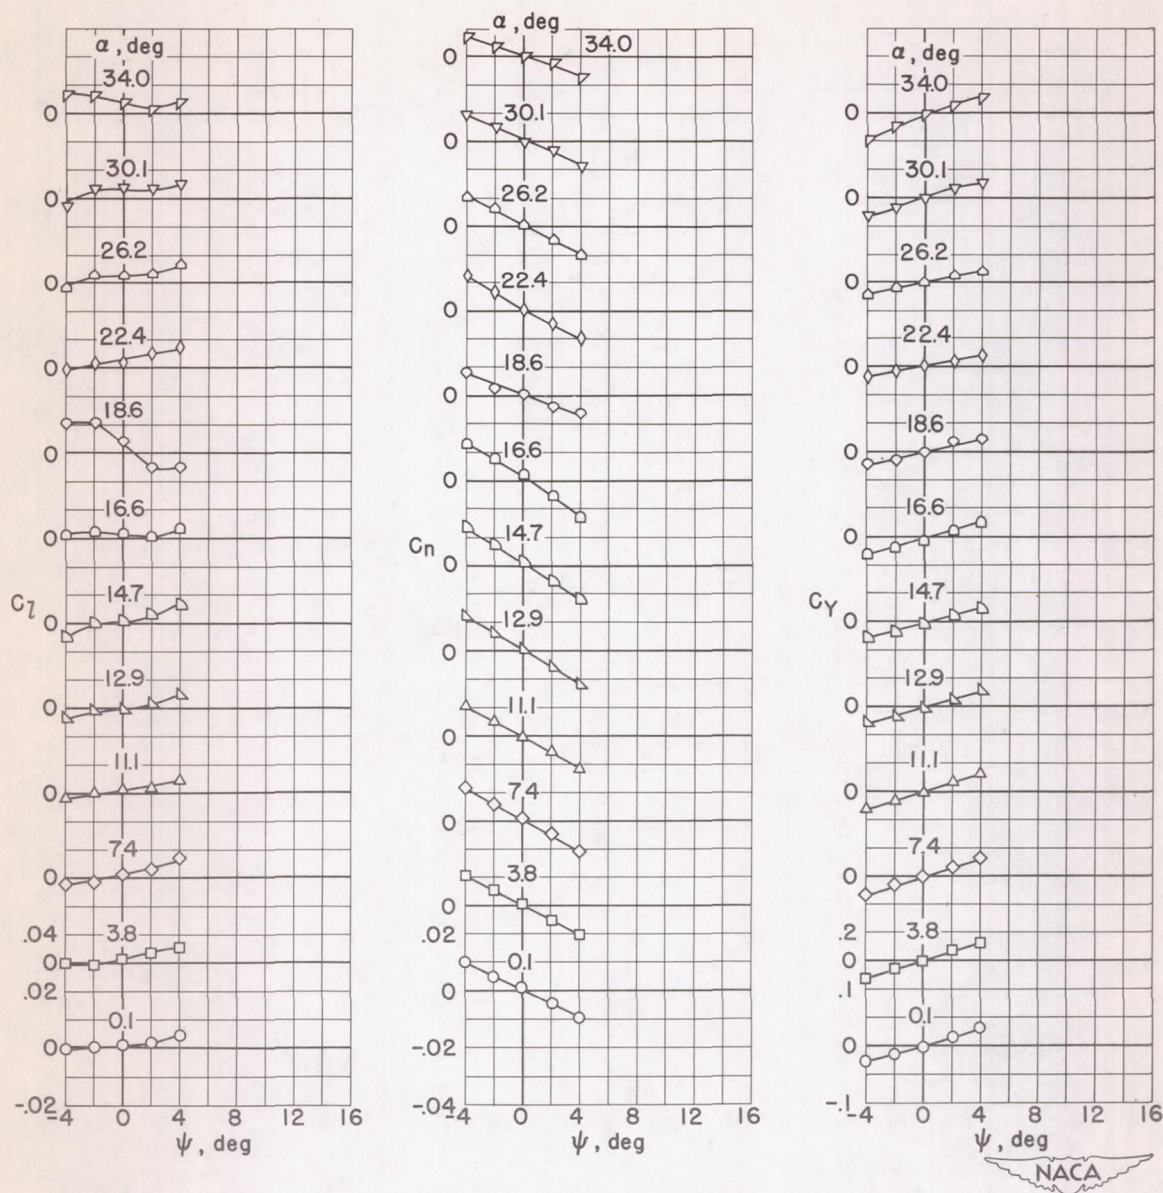 α, deg
34.0
0
30.1
0
26.2
0
22.4
0
18.6
0
16.6
0
14.7
C_l 0
12.9
0
11.1
0
7.4
0
.04 3.8
0
.02
0.1
0
-.02
-4 0 4 8 12 16
ψ, deg
α, deg
34.0
0
30.1
0
26.2
0
22.4
0
18.6
0
16.6
0
14.7
C_n
0
12.9
0
11.1
0
7.4
0
3.8
0
.02
0.1
0
-.02
-.04
-4 0 4 8 12 16
ψ, deg
α, deg
34.0
0
30.1
0
26.2
0
22.4
0
18.6
0
16.6
0
14.7
C_Y
0
12.9
0
11.1
0
7.4
0
.2 3.8
0
.1
0.1
0
-.1
-4 0 4 8 12 16
ψ, deg
NACA